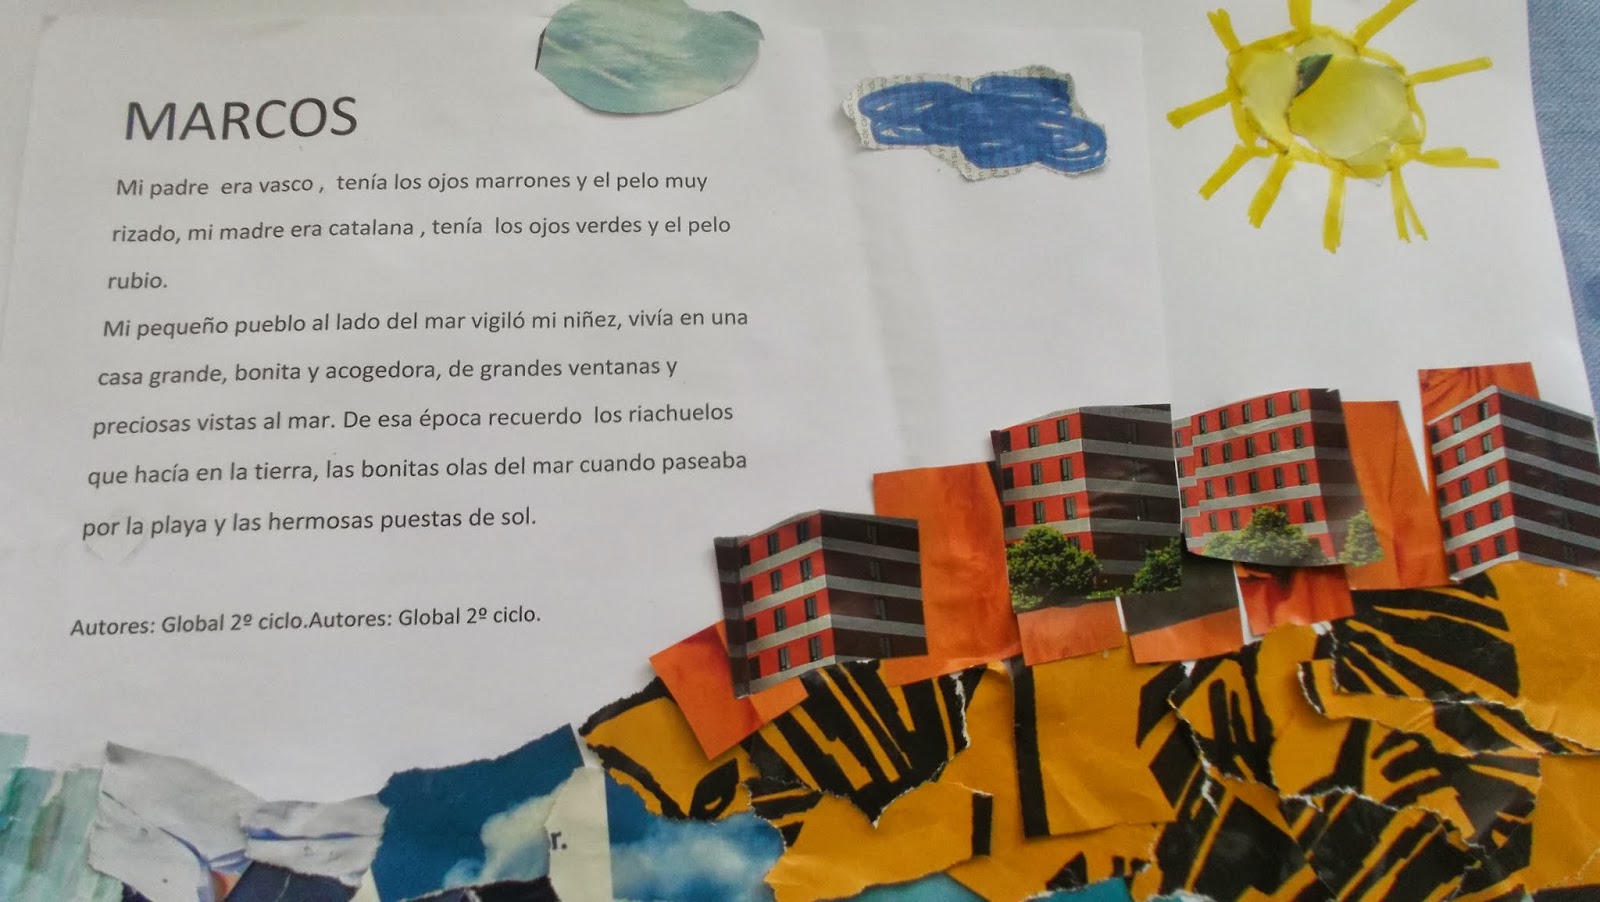 MARCOS
Mi padre era vasco , tenía los ojos marrones y el pelo muy
rizado, mi madre era catalana , tenía los ojos verdes y el pelo
rubio.
Mi pequeño pueblo al lado del mar vigiló mi niñez, vivía en una
casa grande, bonita y acogedora, de grandes ventanas y
preciosas vistas al mar. De esa época recuerdo los riachuelos
que hacía en la tierra, las bonitas olas del mar cuando paseaba
por la playa y las hermosas puestas de sol.
Autores: Global 2º ciclo.Autores: Global 2º ciclo.
r.